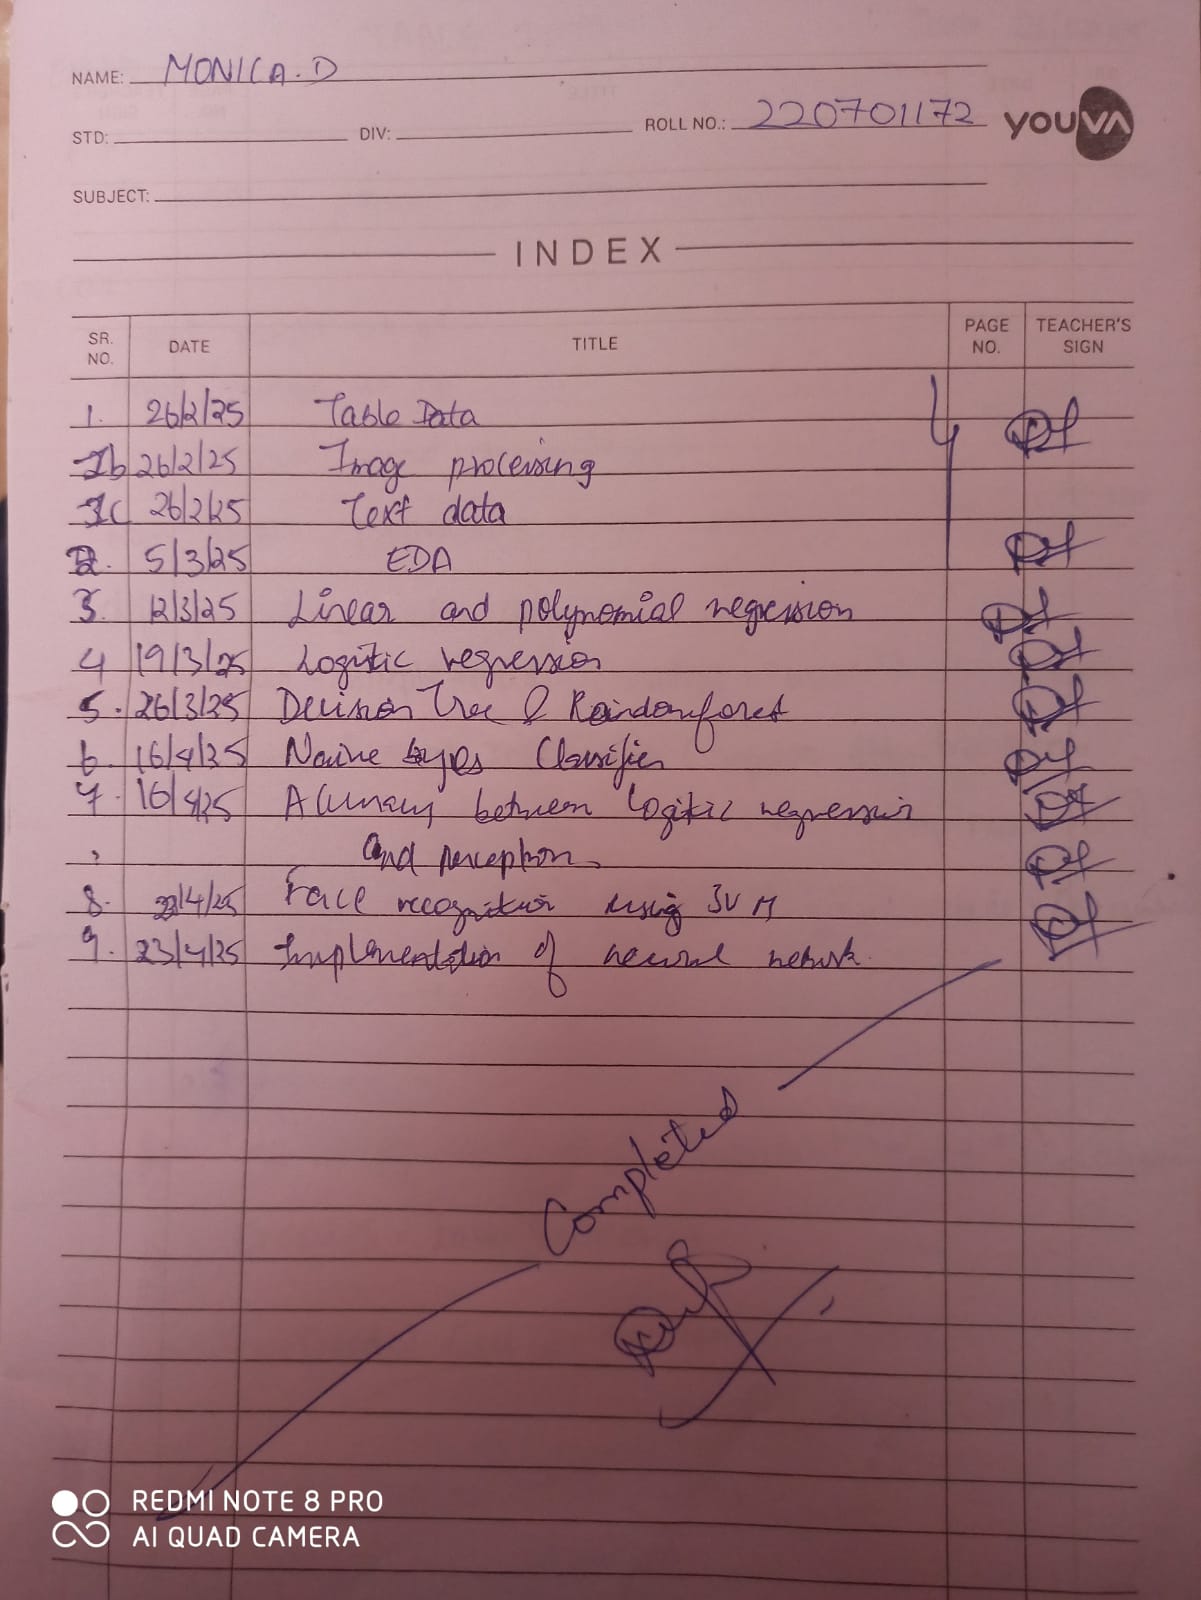 NAME: MONICA. D
STD: DIV: ROLL NO.: 220701172 YOUVA
SUBJECT:
INDEX
SR. NO. DATE TITLE PAGE NO. TEACHER'S SIGN
1. 26/2/25 Table Data
1b 26/2/25 Image processing
1c 26/2/25 Text data
2. 5/3/25 EDA
3. 12/3/25 Linear and polynomial regression
4 19/3/25 Logitic regression
5. 26/3/25 Decision Tree & Randomforest
6. 16/4/25 Naive Classifier
7. 16/4/25 Accuracy between logitic regression
and perception
8. 23/4/25 Face recognition using SVM
9. 23/4/25 Implementation of neural network.
Completed
REDMI NOTE 8 PRO
AI QUAD CAMERA